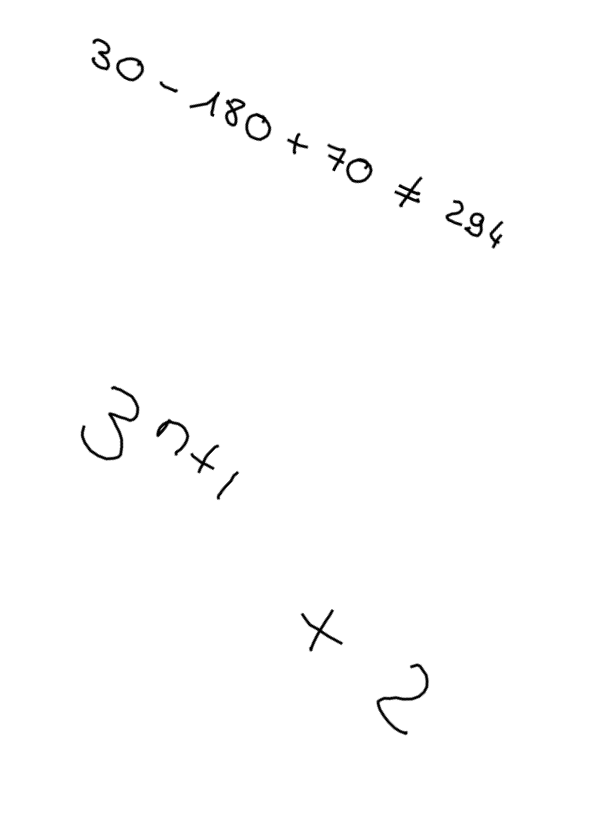 30 - 180 + 70 ≠ 294
3^{n+1} + 2